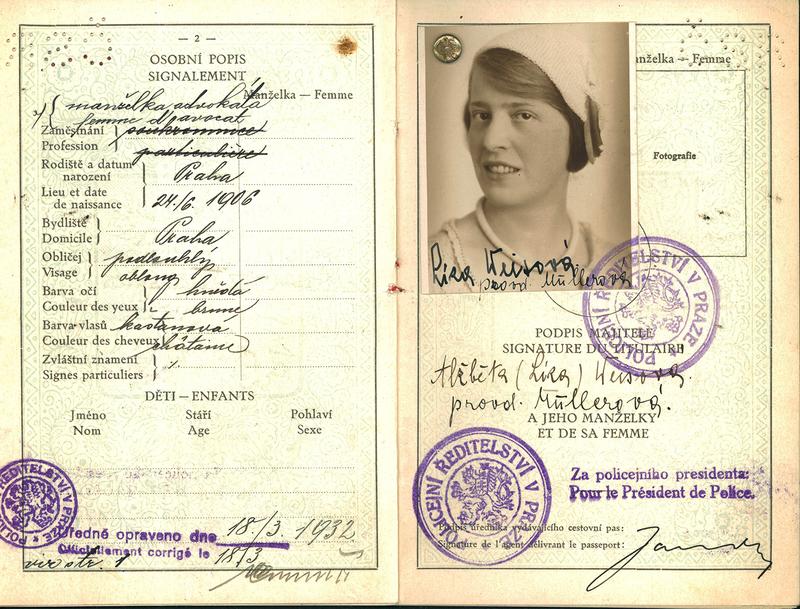 — 2 —
OSOBNÍ POPIS
SIGNALEMENT
Manželka — Femme
manželka advokáta
femme d'avocat
Zaměstnání soukromnice
Profession particulière
Rodiště a datum narození Praha
Lieu et date de naissance 24./6. 1906
Bydliště
Domicile Praha
Obličej podlouhlý
Visage oblong
Barva očí hnědá
Couleur des yeux brune
Barva vlasů kaštanová
Couleur des cheveux châtaine
Zvláštní znamení
Signes particuliers
DĚTI — ENFANTS
Jméno Stáří Pohlaví
Nom Age Sexe
Úředně opraveno dne 18/3. 1932
Officiellement corrigé le 18/3
viz str. 1
POLICEJNÍ ŘEDITELSTVÍ V PRAZE
Manželka — Femme
Fotografie
Liza Weisová
provd. Müllerová
POLICEJNÍ ŘEDITELSTVÍ V PRAZE
PODPIS MAJITELE
SIGNATURE DU TITULAIRE
Alžběta (Liza) Weisová.
provd. Müllerová.
A JEHO MANŽELKY
ET DE SA FEMME
POLICEJNÍ ŘEDITELSTVÍ V PRAZE
Za policejního presidenta:
Pour le Président de Police.
Podpis úředníka vydávajícího cestovní pas:
Signature de l'agent délivrant le passeport: